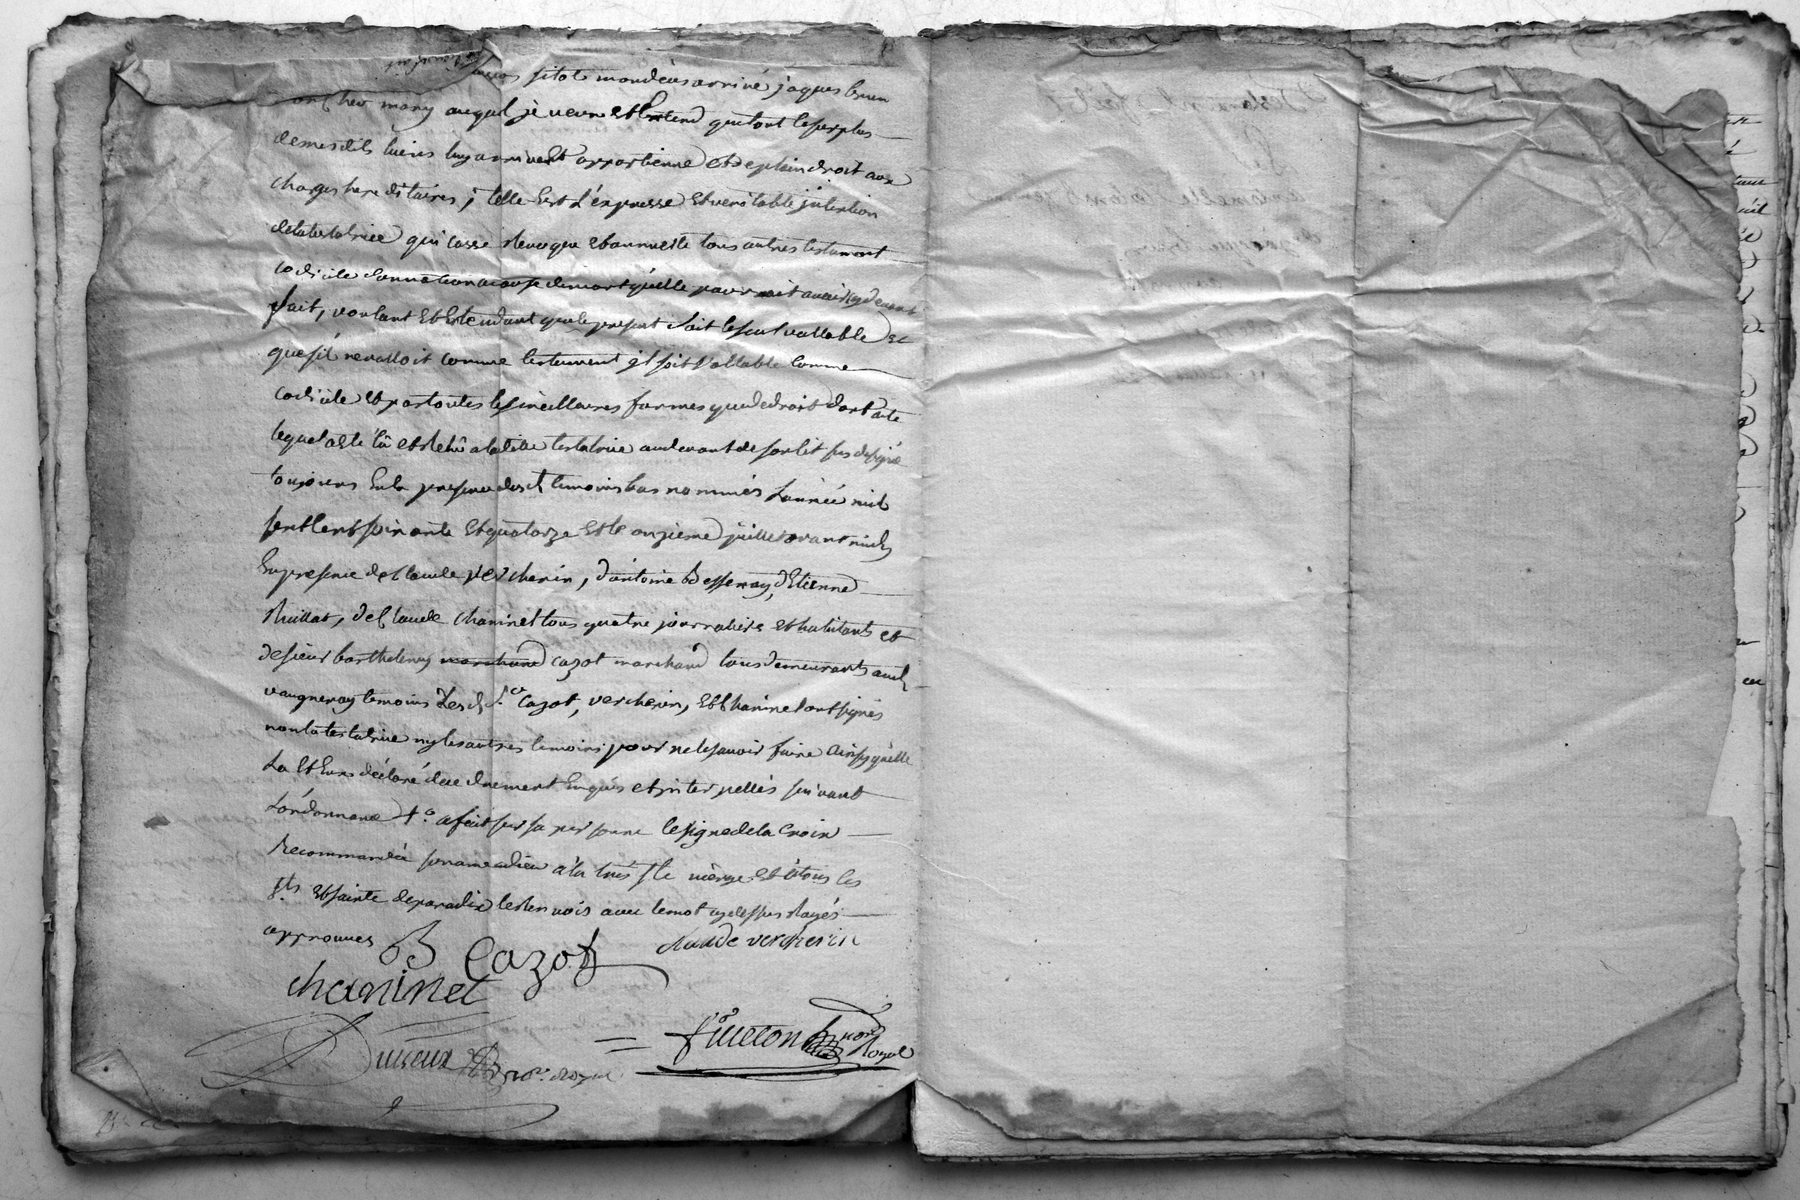 sitot mon decès arrivé jaques brun
mon cher mary auquel je veux et Entend que tout le surplus
de mes dits biens luy arrivent appartienne et de plein droit aux
charges hereditaires, telle Est L'expresse et veritable jntention
de la testatrice qui casse Revoque et annuelle tous autres testament
codicile donnation a cause de mort qu'elle pourroit avoir cy devant
fait, voulant Et Entendant que le present soit le seul vallable et
que sil ne valloit comme testament jl soit Vallable Comme
codicile et par toutes les meilleures formes que de droit dont acte
lequel a ete lû et relû a la ditte testatrice au devant de son lit sus designé
toujours En la presence desd temoins bas nommés L'année mil
sept cent soixante et quatorze et le onzieme juillet avant midy
En presence de Claude Vercherin, d'antoine Bessenay, d'Etienne
Ruillat, de Claude Chaninet tous quatre journaliers et habitants et
de sieur barthelemy marchand cazot marchand tous demeurants aud
vaugneray temoins Lesd Sr Cazot, vercherin, et Chaninet ont signés
non la testatrice ny les autres temoins pour ne le savoir faire ainsy qu'elle
La Et Eux déclaré de ce duement Enquis et jnterpellés suivant
L'ordonnance a fait sur sa personne le signe de la Croix
Recommandéé son ame a dieu à la tres Ste viérge et à tous les
Sts Et sainte de paradix avec le mot cy dessus Rayés
approuves B Cazot claude vercherin
chaninet
not. Royal
not. Royal